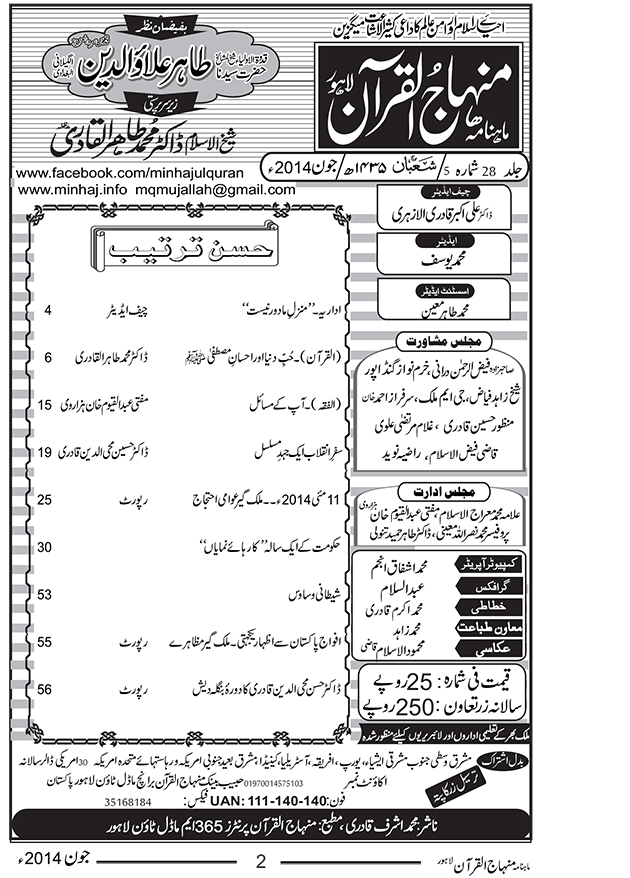 احیائے اسلام و امن عالم کا داعی کثیر الاشاعت میگزین
ماہنامہ منہاج القرآن لاہور
بفیضان نظر
قدوۃ الاولیاء
حضرت سیدنا
طاہر علاؤالدین
الگیلانی البغدادی
زیر سرپرستی
شیخ الاسلام ڈاکٹر محمد طاہر القادری
جلد 28 شمارہ 5 / شعبان ۱۴۳۵ھ / جون 2014ء
www.facebook.com/minhajulquran
www.minhaj.info mqmujallah@gmail.com
چیف ایڈیٹر
ڈاکٹر علی اکبر قادری الازہری
ایڈیٹر
محمد یوسف
اسسٹنٹ ایڈیٹر
محمد طاہر معین
مجلس مشاورت
صاحبزادہ فیض الرحمٰن درانی، خرم نواز گنڈاپور
شیخ زاہد فیاض، جی ایم ملک، سرفراز احمد خان
منظور حسین قادری، غلام مرتضیٰ علوی
قاضی فیض الاسلام، راضیہ نوید
مجلس ادارت
علامہ محمد معراج الاسلام، مفتی عبدالقیوم خان ہزاروی
پروفیسر محمد نصراللہ معینی، ڈاکٹر طاہر حمید تنولی
کمپیوٹر آپریٹر محمد اشفاق انجم
گرافکس عبدالسلام
خطاطی محمد اکرم قادری
معاون طباعت محمد زاہد
عکاسی محمود الاسلام قاضی
قیمت فی شمارہ: 25 روپے
سالانہ زر تعاون: 250 روپے
ملک بھر کے تعلیمی اداروں اور لائبریریوں کیلئے منظور شدہ
حسن ترتیب
اداریہ۔ ”منزل ما دور نیست“ چیف ایڈیٹر 4
(القرآن)۔ حُبِّ دنیا اور احسانِ مصطفیٰ ﷺ ڈاکٹر محمد طاہر القادری 6
(الفقہ)۔ آپ کے مسائل مفتی عبدالقیوم خان ہزاروی 15
سفرِ انقلاب ایک جہدِ مسلسل ڈاکٹر حسین محی الدین قادری 19
11 مئی 2014ء۔۔ ملک گیر عوامی احتجاج رپورٹ 25
حکومت کے ایک سالہ ”کارہائے نمایاں“ 30
شیطانی وساوس 53
افواج پاکستان سے اظہار یکجہتی۔ ملک گیر مظاہرے رپورٹ 55
ڈاکٹر حسن محی الدین قادری کا دورہ بنگلہ دیش رپورٹ 56
بدل اشتراک مشرق وسطیٰ جنوب مشرقی ایشیاء، یورپ، افریقہ، آسٹریلیا، کینیڈا، مشرق بعید جنوبی امریکہ و ریاستہائے متحدہ امریکہ 30 امریکی ڈالر سالانہ
ترسیل زر کا پتہ اکاؤنٹ نمبر 01970014575103 حبیب بینک منہاج القرآن برانچ ماڈل ٹاؤن لاہور پاکستان
فون: UAN: 111-140-140 فیکس: 35168184
ناشر: محمد اشرف قادری، مطبع: منہاج القرآن پرنٹرز 365 ایم ماڈل ٹاؤن لاہور
ماہنامہ منہاج القرآن لاہور 2 جون 2014ء